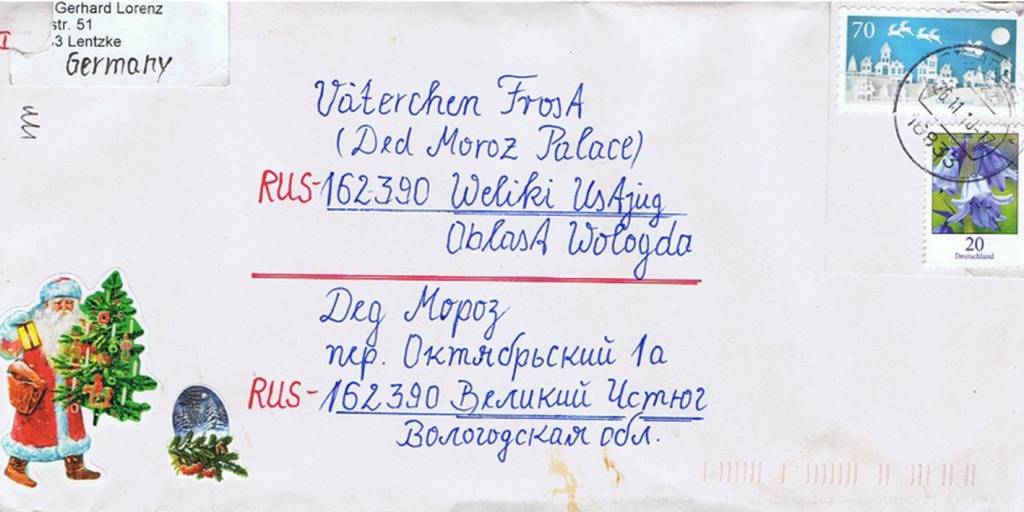 Gerhard Lorenz
str. 51
3 Lentzke
Germany
70
20
Deutschland
Väterchen Frost
(Ded Moroz Palace)
RUS-162390 Weliki Ustjug
Oblast Wologda
Дед Мороз
пер. Октябрьский 1а
RUS-162390 Великий Устюг
Вологодская обл.